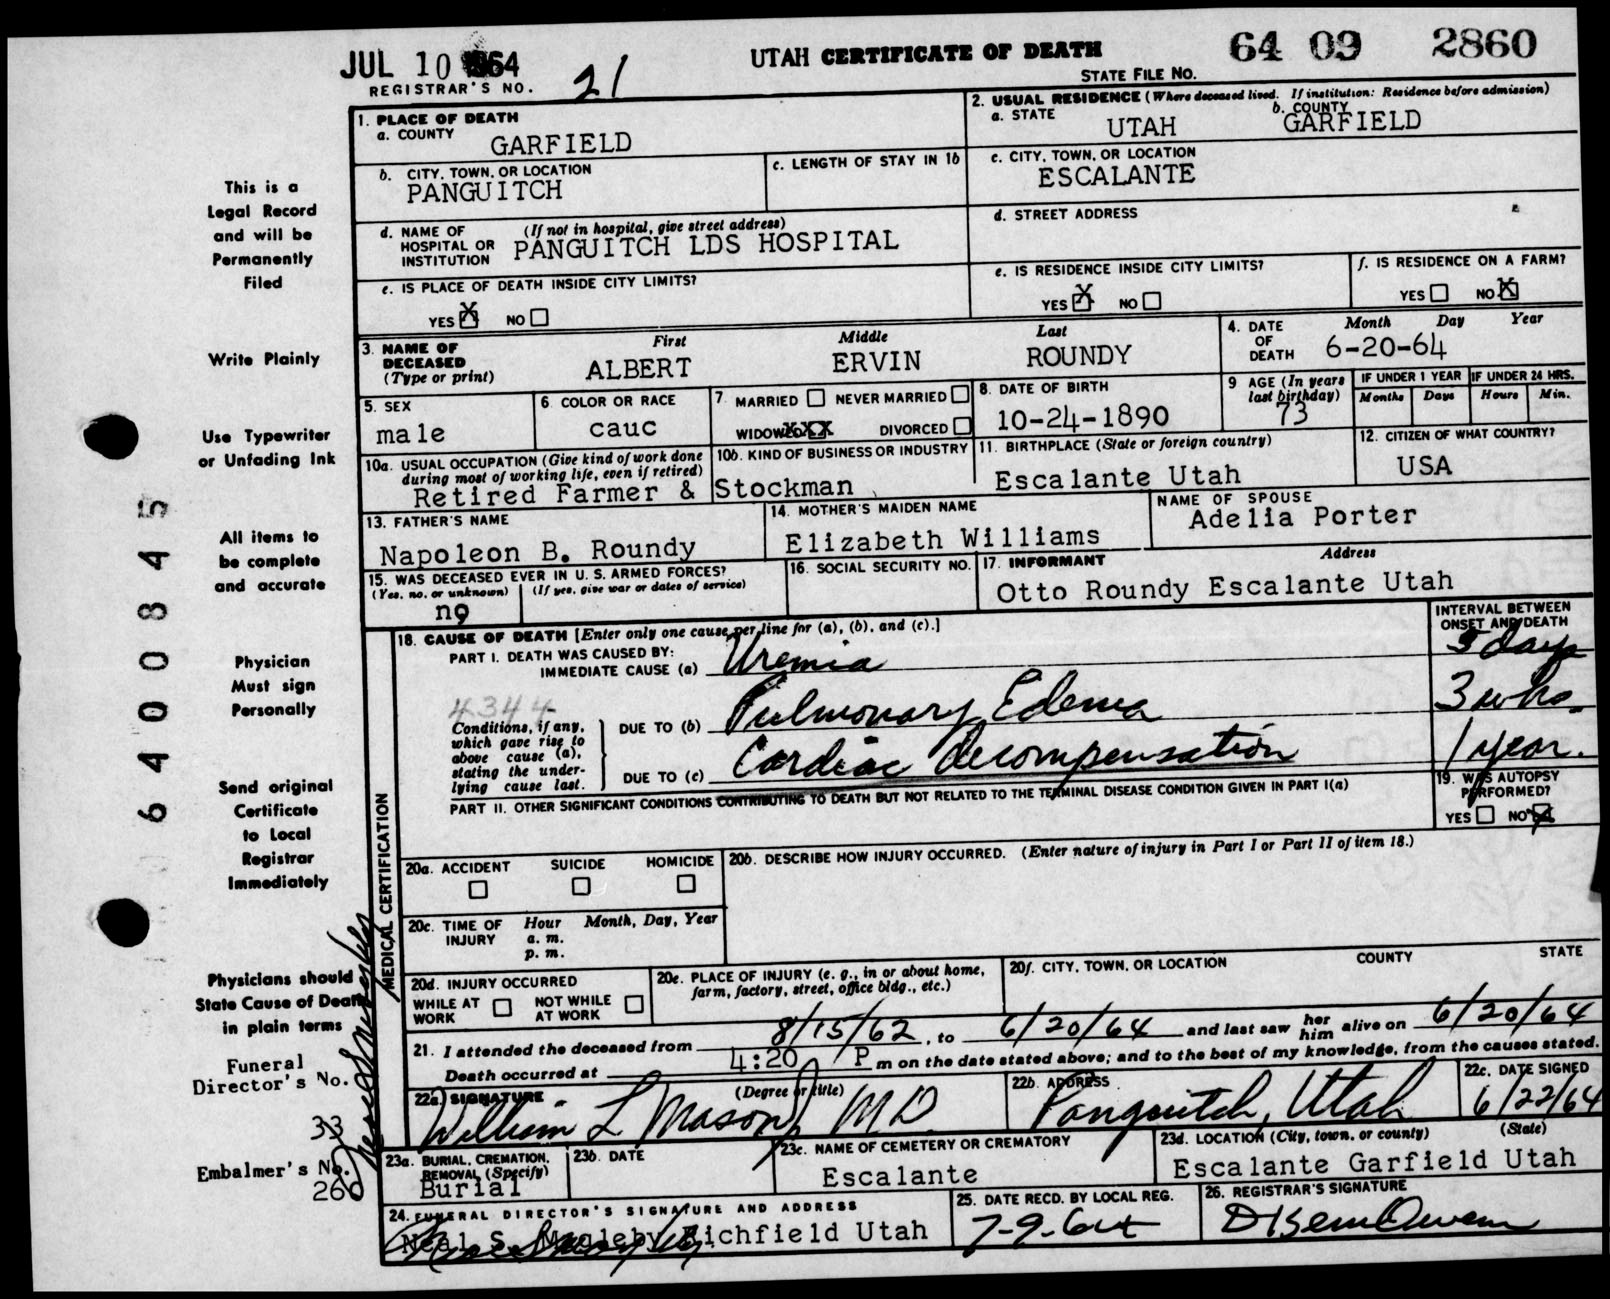 JUL 10 1964
UTAH CERTIFICATE OF DEATH
64 09 2860
REGISTRAR'S NO. 21
STATE FILE NO.
1. PLACE OF DEATH
a. COUNTY
GARFIELD
2. USUAL RESIDENCE (Where deceased lived. If institution: Residence before admission)
a. STATE
UTAH
b. COUNTY
GARFIELD
b. CITY, TOWN, OR LOCATION
PANGUITCH
c. LENGTH OF STAY IN 1b
c. CITY, TOWN, OR LOCATION
ESCALANTE
d. NAME OF HOSPITAL OR INSTITUTION
(If not in hospital, give street address)
PANGUITCH LDS HOSPITAL
d. STREET ADDRESS
e. IS PLACE OF DEATH INSIDE CITY LIMITS?
YES X NO
e. IS RESIDENCE INSIDE CITY LIMITS?
YES X NO
f. IS RESIDENCE ON A FARM?
YES NO X
3. NAME OF DECEASED (Type or print)
First Middle Last
ALBERT ERVIN ROUNDY
4. DATE OF DEATH
Month Day Year
6-20-64
5. SEX
male
6 COLOR OR RACE
cauc
7 MARRIED NEVER MARRIED
WIDOWED XXX DIVORCED
8. DATE OF BIRTH
10-24-1890
9 AGE (In years last birthday)
73
IF UNDER 1 YEAR
Months Days
IF UNDER 24 HRS.
Hours Min.
10a. USUAL OCCUPATION (Give kind of work done during most of working life, even if retired)
10b. KIND OF BUSINESS OR INDUSTRY
Retired Farmer & Stockman
11. BIRTHPLACE (State or foreign country)
Escalante Utah
12. CITIZEN OF WHAT COUNTRY?
USA
13. FATHER'S NAME
Napoleon B. Roundy
14. MOTHER'S MAIDEN NAME
Elizabeth Williams
NAME OF SPOUSE
Adelia Porter
15. WAS DECEASED EVER IN U. S. ARMED FORCES?
(Yes, no, or unknown) (If yes, give war or dates of service)
no
16. SOCIAL SECURITY NO.
17. INFORMANT Address
Otto Roundy Escalante Utah
18. CAUSE OF DEATH [Enter only one cause per line for (a), (b), and (c).]
INTERVAL BETWEEN ONSET AND DEATH
PART I. DEATH WAS CAUSED BY:
IMMEDIATE CAUSE (a) Uremia 5 days
4344
Conditions, if any, which gave rise to above cause (a), stating the underlying cause last.
DUE TO (b) Pulmonary Edema 3 wks.
DUE TO (c) Cardiac decompensation 1 year.
PART II. OTHER SIGNIFICANT CONDITIONS CONTRIBUTING TO DEATH BUT NOT RELATED TO THE TERMINAL DISEASE CONDITION GIVEN IN PART I(a)
19. WAS AUTOPSY PERFORMED?
YES NO X
MEDICAL CERTIFICATION
20a. ACCIDENT SUICIDE HOMICIDE
20b. DESCRIBE HOW INJURY OCCURRED. (Enter nature of injury in Part I or Part II of item 18.)
20c. TIME OF INJURY
Hour Month, Day, Year
a. m.
p. m.
20d. INJURY OCCURRED
WHILE AT WORK NOT WHILE AT WORK
20e. PLACE OF INJURY (e. g., in or about home, farm, factory, street, office bldg., etc.)
20f. CITY, TOWN, OR LOCATION COUNTY STATE
21. I attended the deceased from 8/15/62, to 6/20/64 and last saw her him alive on 6/20/64
Death occurred at 4:20 P m on the date stated above; and to the best of my knowledge, from the causes stated.
22a. SIGNATURE (Degree or title)
William L Mason, M D.
22b. ADDRESS
Panguitch, Utah
22c. DATE SIGNED
6/22/64
23a. BURIAL, CREMATION, REMOVAL (Specify)
Burial
23b. DATE
23c. NAME OF CEMETERY OR CREMATORY
Escalante
23d. LOCATION (City, town, or county) (State)
Escalante Garfield Utah
24. FUNERAL DIRECTOR'S SIGNATURE AND ADDRESS
Neal S. Magleby Richfield Utah
25. DATE RECD. BY LOCAL REG.
7-9-64
26. REGISTRAR'S SIGNATURE
This is a
Legal Record
and will be
Permanently
Filed
Write Plainly
Use Typewriter
or Unfading Ink
All items to
be complete
and accurate
Physician
Must sign
Personally
Send original
Certificate
to Local
Registrar
Immediately
Physicians should
State Cause of Death
in plain terms
Funeral
Director's No.
33
Embalmer's No.
260
6400845